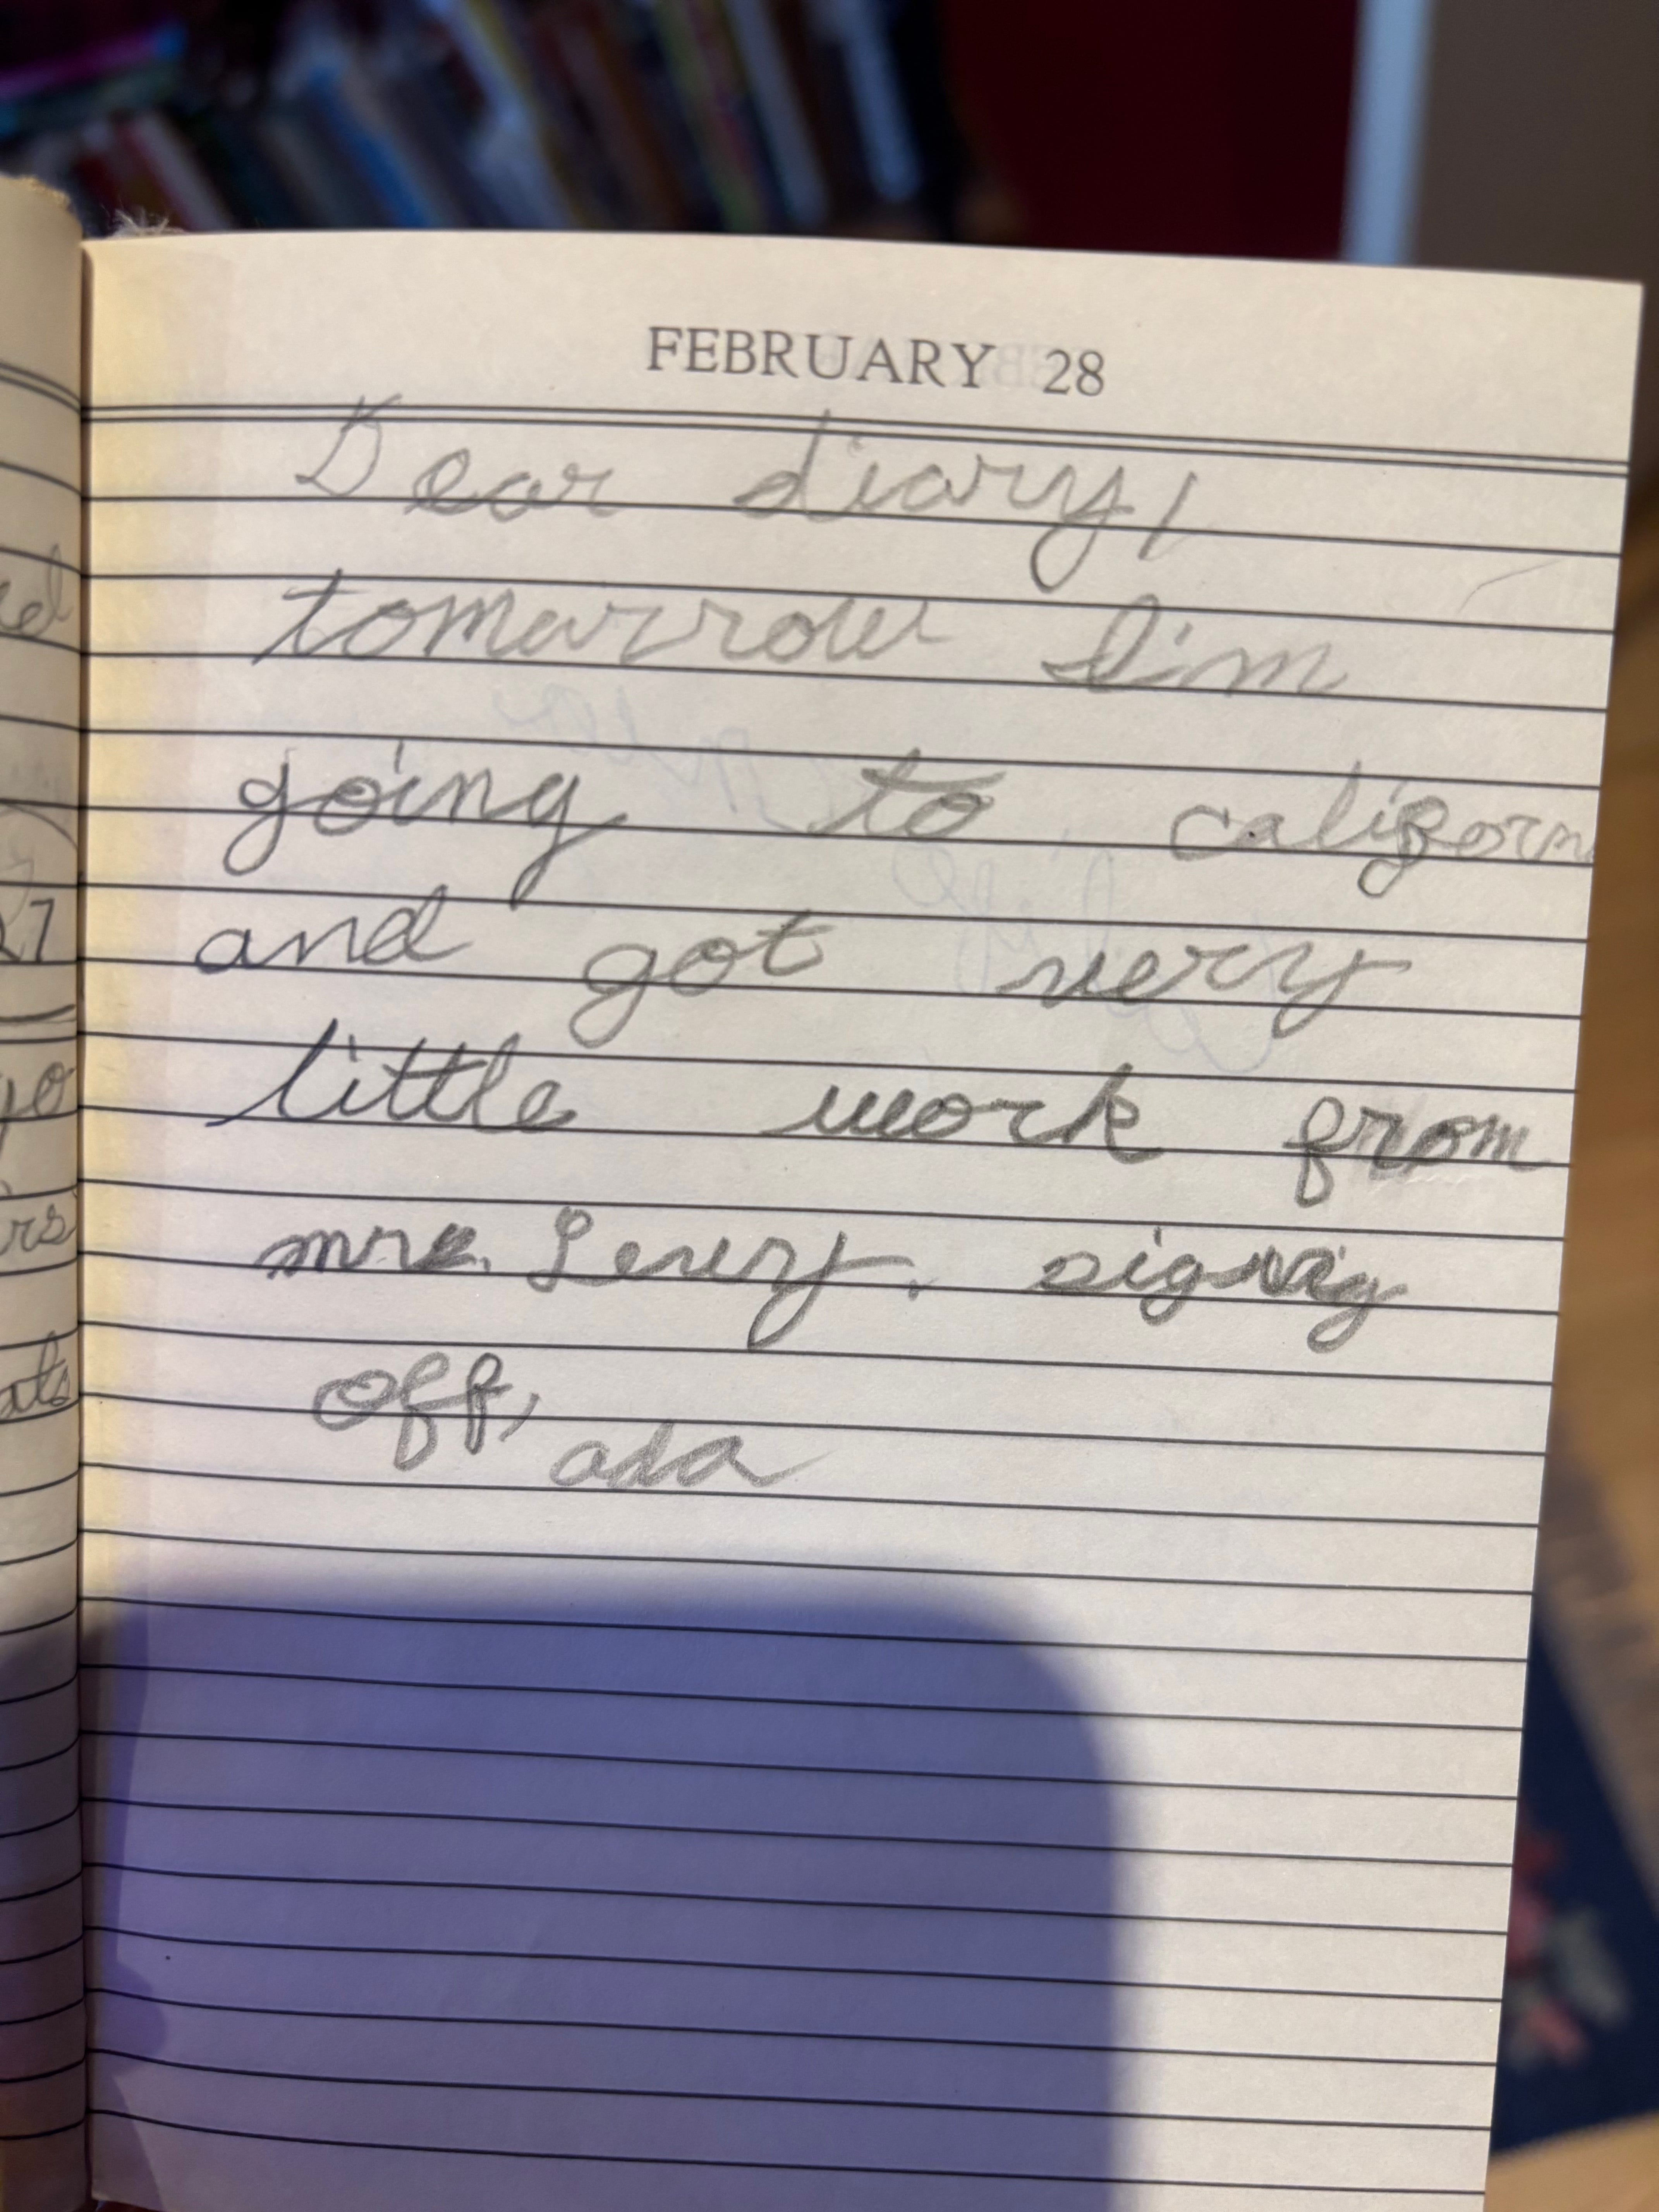 FEBRUARY 28
Dear diary,
tomarrow I'm
going to californ
and got very
little work from
mrs. Levry. signig
off, ada
27
yo
rs